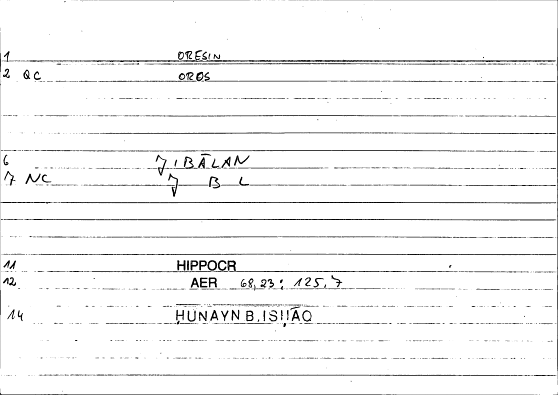 1 ORESIN
2 QC OROS
6 JIBĀLAN
7 NC J B L
11 HIPPOCR
12 AER 68,23; 125,7
14 ḤUNAYN B. ISḤĀQ